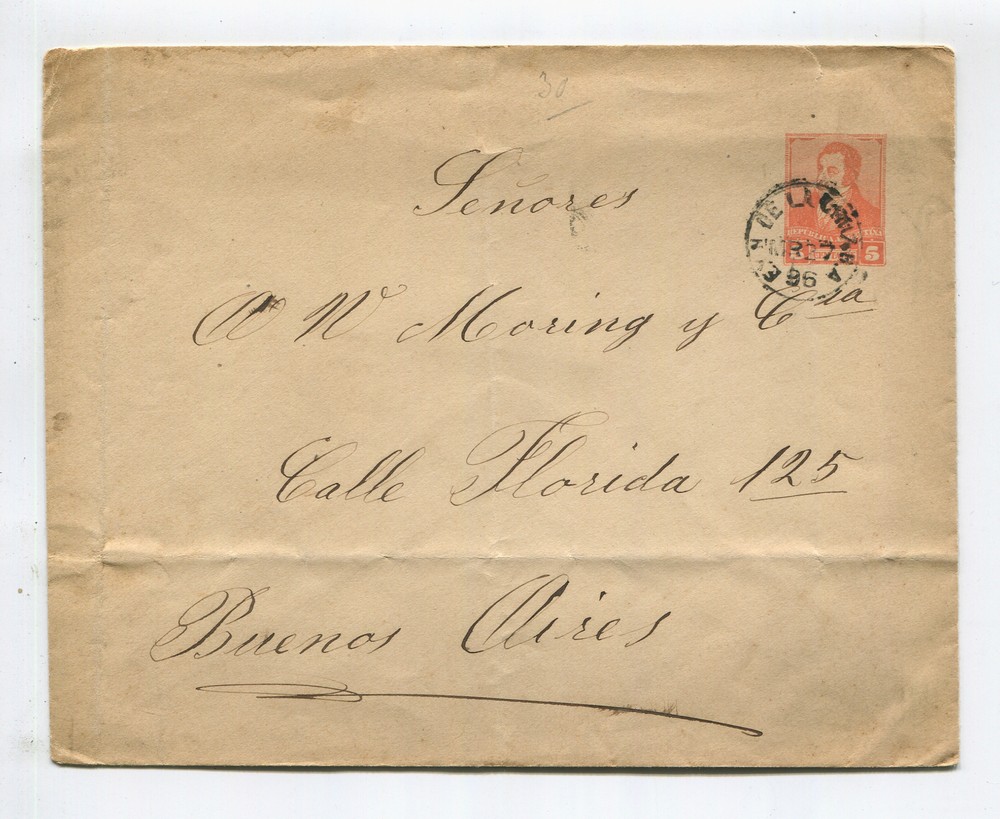 30
Señores
A W Moring y Cia
Calle Florida 125
Buenos Aires
REPUBLICA
5
DE LA
27
96